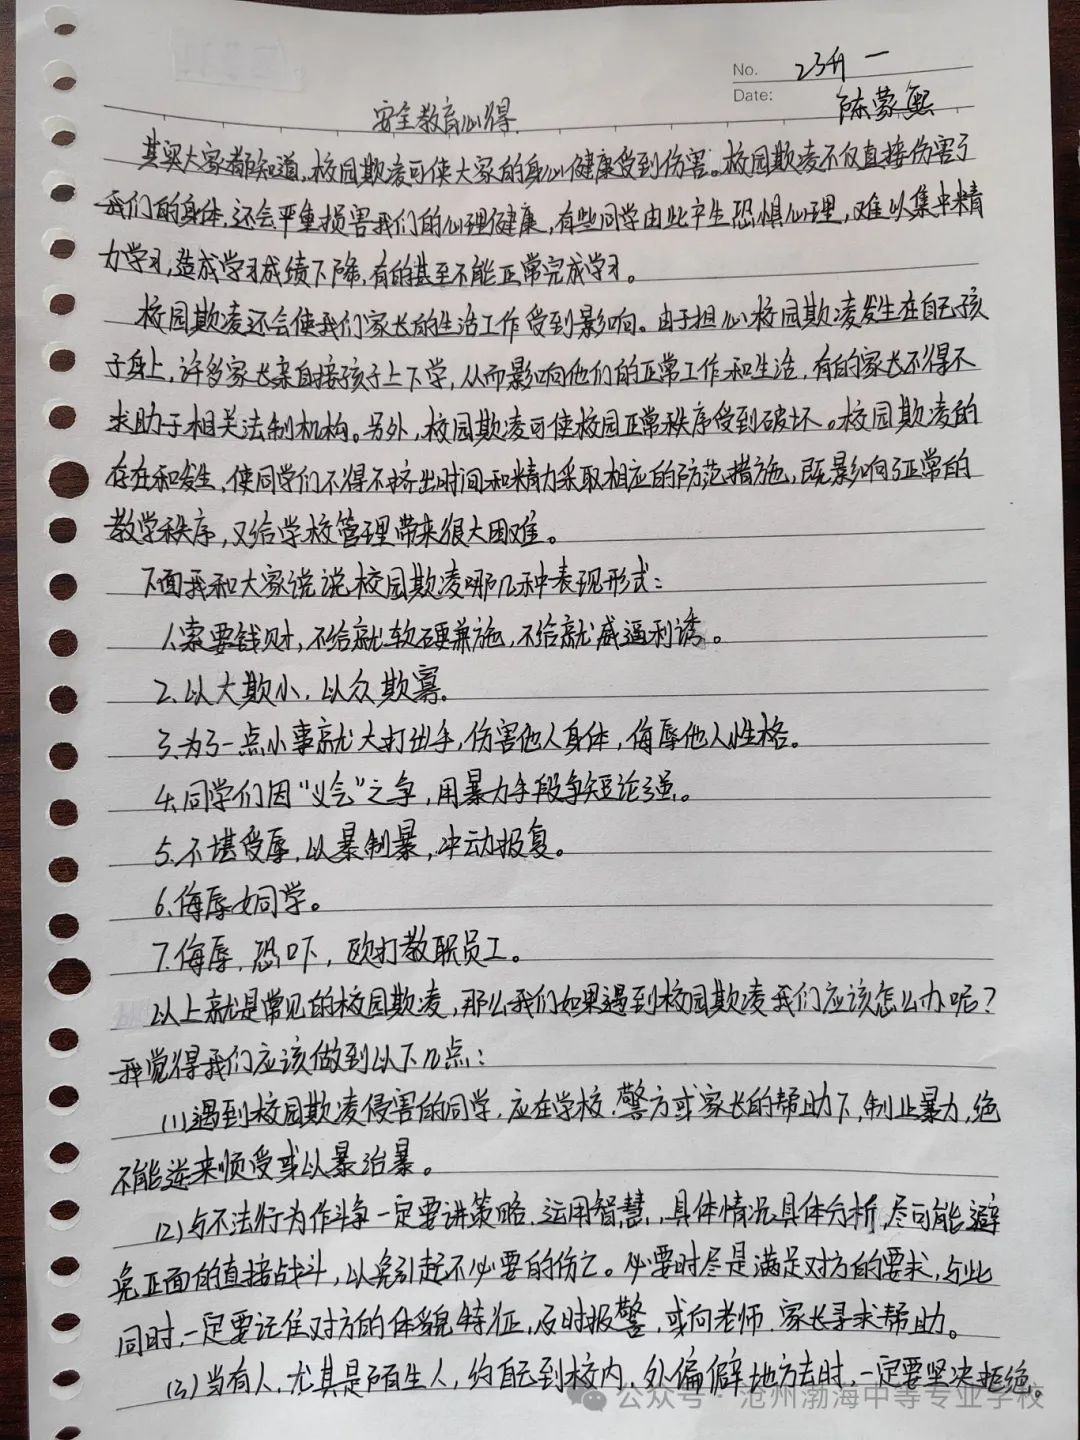 No. 23升一
Date: 陈蒙熙
安全教育心得
其实大家都知道,校园欺凌可使大家的身心健康受到伤害。校园欺凌不仅直接伤害了
我们的身体,还会严重损害我们的心理健康,有些同学由此产生恐惧心理,难以集中精
力学习,造成学习成绩下降,有的甚至不能正常完成学习。
校园欺凌还会使我们家长的生活工作受到影响。由于担心校园欺凌发生在自己孩
子身上,许多家长亲自接孩子上下学,从而影响他们的正常工作和生活,有的家长不得不
求助于相关法制机构。另外,校园欺凌可使校园正常秩序受到破坏。校园欺凌的
存在和发生,使同学们不得不挤出时间和精力采取相应的防范措施,既影响了正常的
教学秩序,又给学校管理带来很大困难。
下面我和大家说说校园欺凌哪几种表现形式:
1.索要钱财,不给就软硬兼施,不给就威逼利诱。
2.以大欺小,以众欺寡.
3.为了一点小事就大打出手,伤害他人身体,侮辱他人性格。
4.同学们因“义气”之争,用暴力手段争短论强。
5.不堪受辱,以暴制暴,冲动报复。
6.侮辱女同学。
7.侮辱,恐吓,欧打教职员工。
以上就是常见的校园欺凌,那么我们如果遇到校园欺凌我们应该怎么办呢?
我觉得我们应该做到以下几点:
(1)遇到校园欺凌侵害的同学,应在学校.警方或家长的帮助下,制止暴力,绝
不能逆来顺受或以暴治暴。
(2)与不法行为作斗争一定要讲策略.运用智慧,具体情况具体分析,尽可能避
免正面的直接战斗,以免引起不必要的伤亡。必要时尽是满足对方的要求,与此
同时,一定要记住对方的体貌特征,及时报警,或向老师.家长寻求帮助。
(3)当有人,尤其是陌生人,约自己到校内,外偏僻地方去时,一定要坚决拒绝。
公众号·沧州渤海中等专业学校